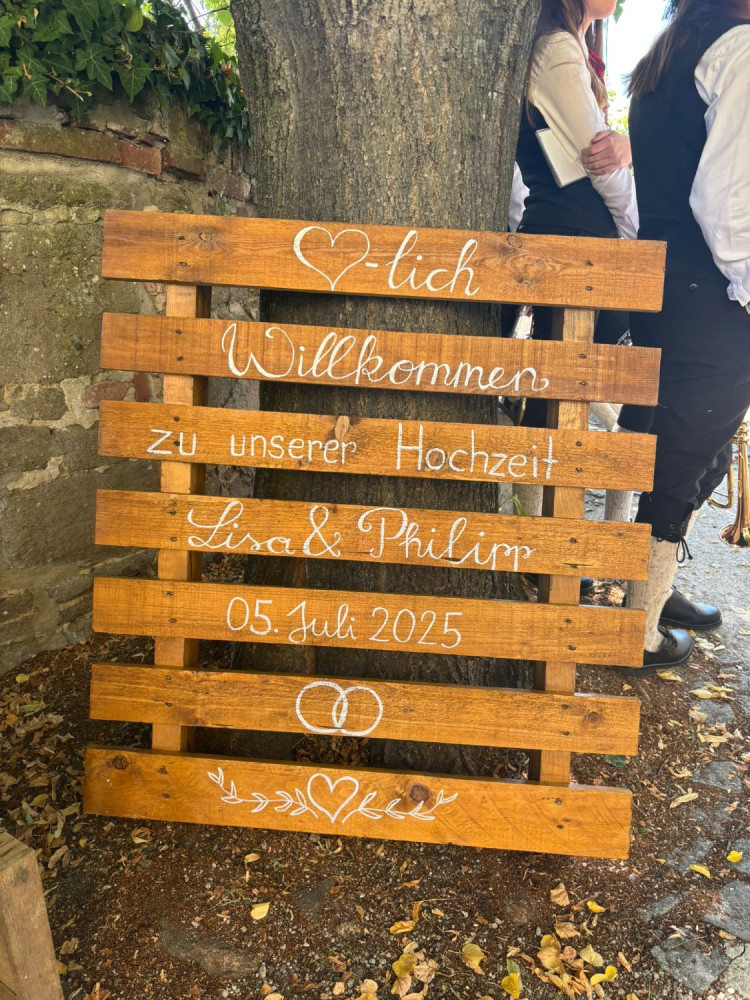 ♡-lich
Willkommen
zu unserer Hochzeit
Lisa & Philipp
05. Juli 2025